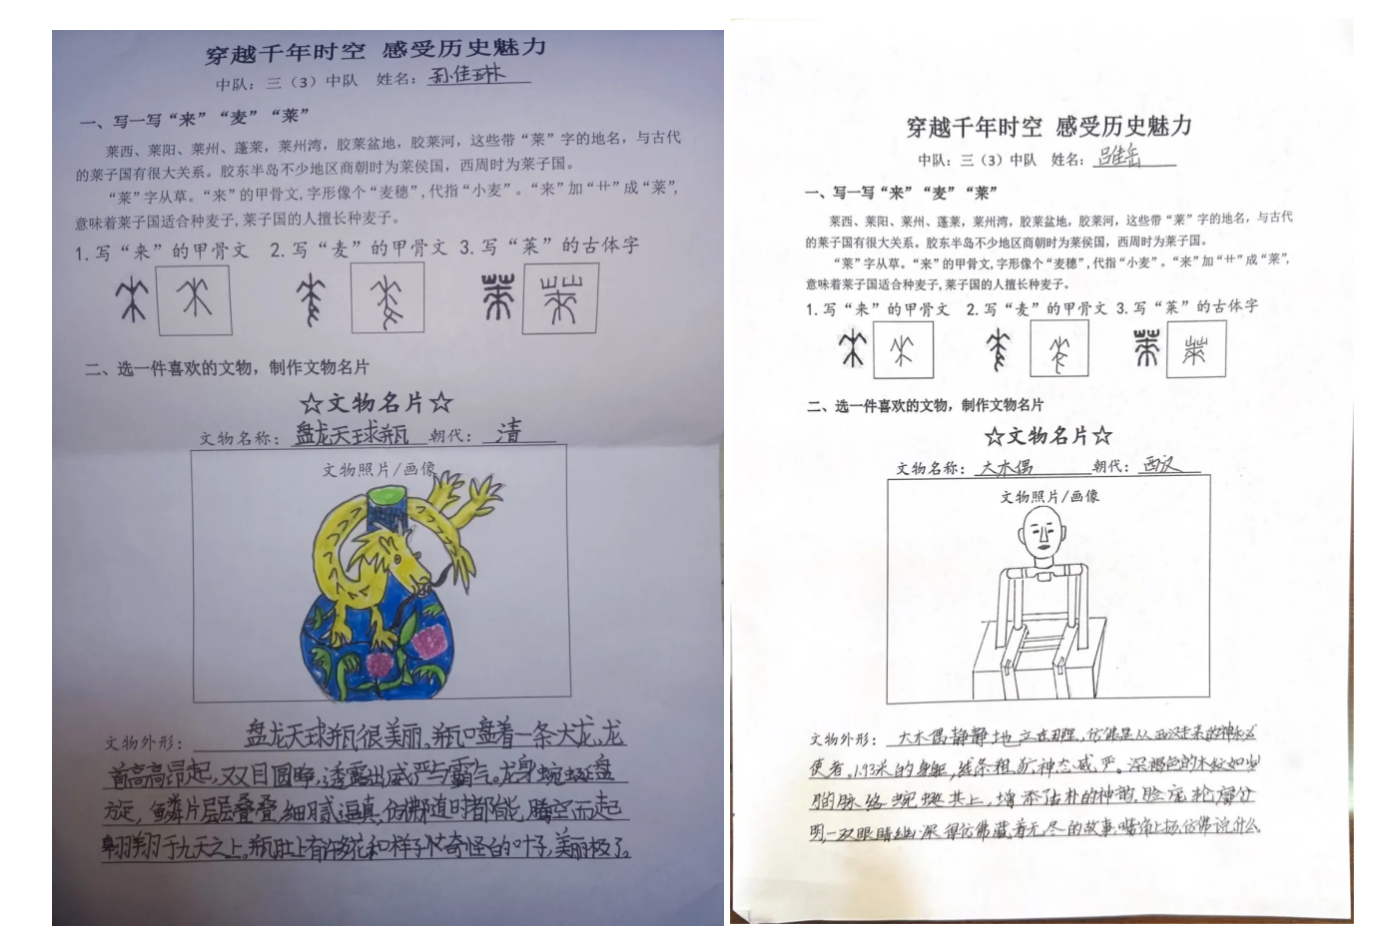 穿越千年时空 感受历史魅力
中队：三（3）中队 姓名：孙佳琳
一、写一写“来”“麦”“莱”
莱西、莱阳、莱州、蓬莱，莱州湾，胶莱盆地，胶莱河，这些带“莱”字的地名，与古代
的莱子国有很大关系。胶东半岛不少地区商朝时为莱侯国，西周时为莱子国。
“莱”字从草。“来”的甲骨文,字形像个“麦穗”,代指“小麦”。“来”加“艹”成“莱”,
意味着莱子国适合种麦子,莱子国的人擅长种麦子。
1.写“来”的甲骨文 2.写“麦”的甲骨文 3.写“莱”的古体字
二、选一件喜欢的文物，制作文物名片
☆文物名片☆
文物名称：盘龙天球瓶 朝代：清
文物照片/画像
文物外形：盘龙天球瓶很美丽,瓶口盘着一条大龙,龙
首高高昂起,双目圆睁,透露出威严与霸气。龙身蜿蜒盘
旋,鳞片层层叠叠,细腻逼真,仿佛随时都能腾空而起
翱翔于九天之上。瓶肚上有许多花和样子奇怪的叶子,美丽极了。
穿越千年时空 感受历史魅力
中队：三（3）中队 姓名：吕佳岳
一、写一写“来”“麦”“莱”
莱西、莱阳、莱州、蓬莱，莱州湾，胶莱盆地，胶莱河，这些带“莱”字的地名，与古代
的莱子国有很大关系。胶东半岛不少地区商朝时为莱侯国，西周时为莱子国。
“莱”字从草。“来”的甲骨文,字形像个“麦穗”,代指“小麦”。“来”加“艹”成“莱”,
意味着莱子国适合种麦子,莱子国的人擅长种麦子。
1.写“来”的甲骨文 2.写“麦”的甲骨文 3.写“莱”的古体字
二、选一件喜欢的文物，制作文物名片
☆文物名片☆
文物名称：大木偶 朝代：西汉
文物照片/画像
文物外形：大木偶静静地立在那里,仿佛是从西汉走来的神秘
使者,1.93米的身躯,线条粗犷,神态威严。深褐色的木纹如岁
月的脉络蜿蜒其上,增添古朴的神韵,脸庞轮廓分
明,一双眼睛幽深得仿佛藏着无尽的故事,嘴角上扬仿佛说什么